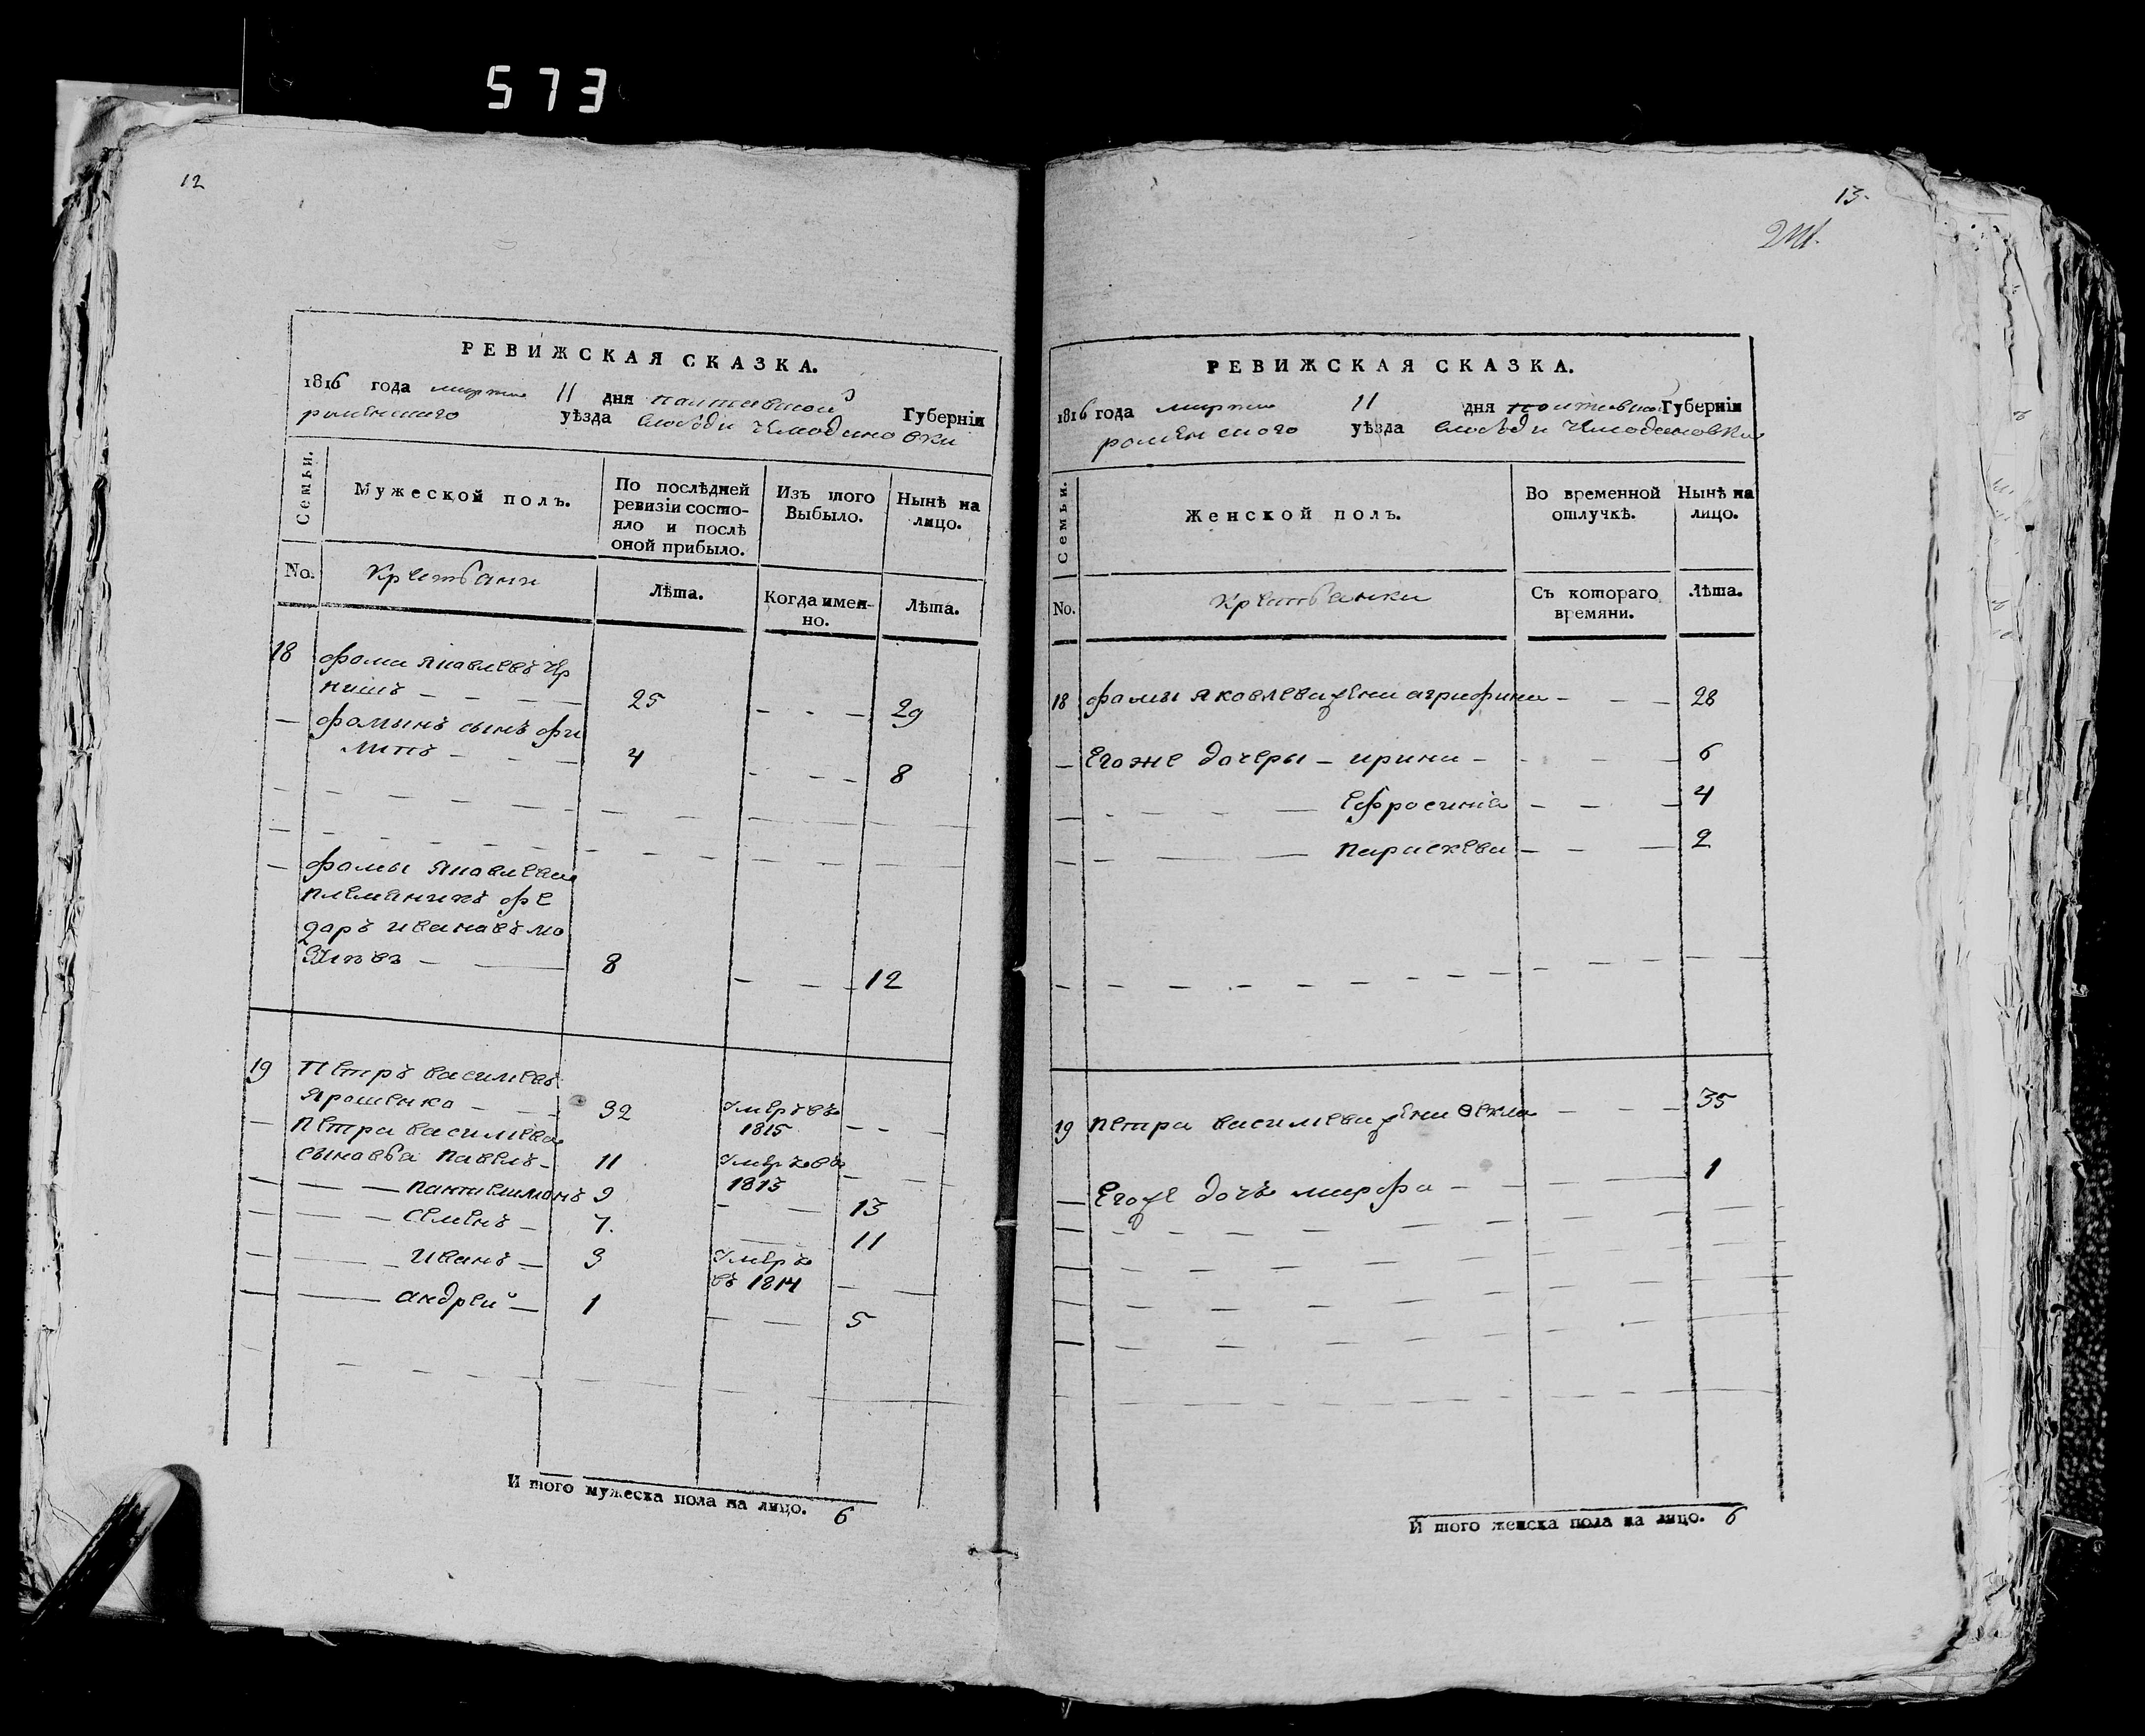 573
12
РЕВИЖСКАЯ СКАЗКА.
1816 года марта 11 дня полтавской Губерніи
роменского уѣзда слободи чемодановки
Семьи.
Мужеской полъ.
По послѣдней ревизіи состо-
яло и послѣ
оной прибыло.
Изъ того
Выбыло.
Нынѣ на
лицо.
No.
Крестьяни
Лѣта.
Когда имен-
но.
Лѣта.
18 фома яковлевъ чер
нишъ — — — 25 — — — 29
— фоминъ сынъ фи
липъ — — — 4 — — — 8
— фомы яковлева
племяникъ фе
доръ ивановъ
8 — — — 12
19 Петръ василевъ
ярошенко — — — 32 умеръ въ
1815 — — —
— петра василева
сыновья павелъ — 11 умеръ въ
1813 — — —
— — — пантилимонъ 9 — — 13
— — — семенъ — 7. — — 11
— — — иванъ — 3 умеръ
въ 1814 — —
— — андрей — 1 — — 5
И того мужеска пола на лицо. 6
13.
РЕВИЖСКАЯ СКАЗКА.
1816 года марта 11 дня полтавской Губерніи
роменского уѣзда слободи чемодановки
Семьи.
Женской полъ.
Во временной
отлучкѣ.
Нынѣ на
лицо.
No.
Крестьянки
Съ котораго
времяни.
Лѣта.
18 фомы яковлева жена агрифина — — — 28
— Егоже дочеры — ирина — — — 6
— — — Ефросинія — — — 4
— — — параскева — — — 2
19 петра василева жена Ѳекла — — — 35
— Егоже дочь марфа — — — 1
И того женска пола на лицо. 6